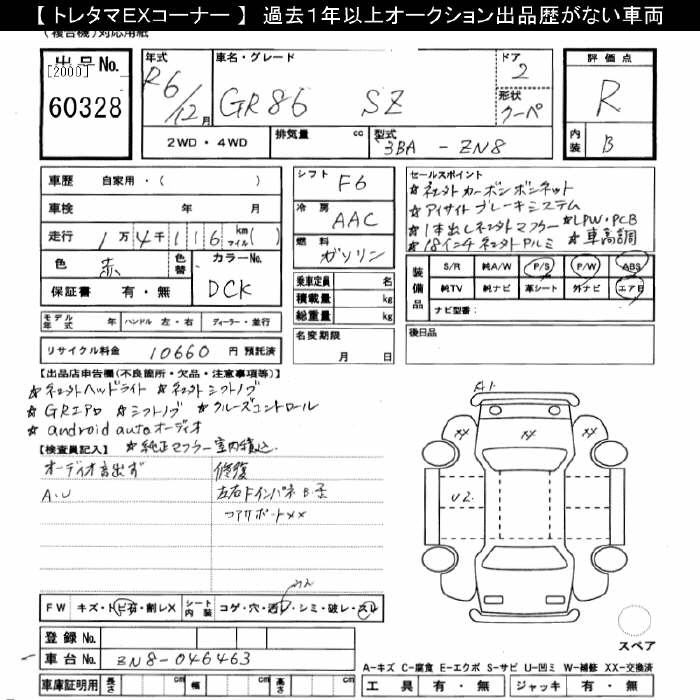 【トレタマEXコーナー】 過去1年以上オークション出品歴がない車両
(複合機)対応用紙
出品No. 年式 車名・グレード ドア 評価点
[2000] R6/12月 GR86 SZ 2 R
60328 形状 クーペ
2WD・4WD 排気量 cc 型式 3BA - ZN8 内装 B
車歴 自家用・( ) シフト F6 セールスポイント
車検 年 月 冷房 AAC ☆社外カーボンボンネット
走行 1万4千116 km マイル( ) 燃料 ガソリン ☆アイサイトブレーキシステム
☆1本出し社外マフラー ☆LPW・PCB
☆18インチ社外アルミ ☆車高調
色 赤 色替 カラーNo. DCK
保証書 有・無
乗車定員 名
積載量 kg
総重量 kg
装備品 S/R 純A/W P/S P/W ABS
純TV 純ナビ 革シート 外ナビ エアB
ナビ型番:
モデル年式 年 ハンドル 左・右 ディーラー・並行 名変期限 月 日 後日品
リサイクル料金 10660 円 預託済
【出品店申告欄(不良箇所・欠品・注意事項等)】
☆社外ヘッドライト ☆社外シフトノブ
☆GRエアロ ☆シフトノブ ☆クルーズコントロール
☆android autoオーディオ
☆純正マフラー室内積込
【検査員記入】
オーディオ音出ず 修復
A.U 左右Fインパネ
コアサポートXX
A1
XX XX XX
U2
FW キズ・トビ有・割レX シート内装 コゲ・穴・汚レ・シミ・破レ・スレ
登録No.
車台No. ZN8-046463
スペア
A-キズ C-腐食 E-エクボ S-サビ U-凹ミ W-補修 XX-交換済
車庫証明用 長さ cm 幅 cm 高さ cm 工具 有・無 ジャッキ 有・無